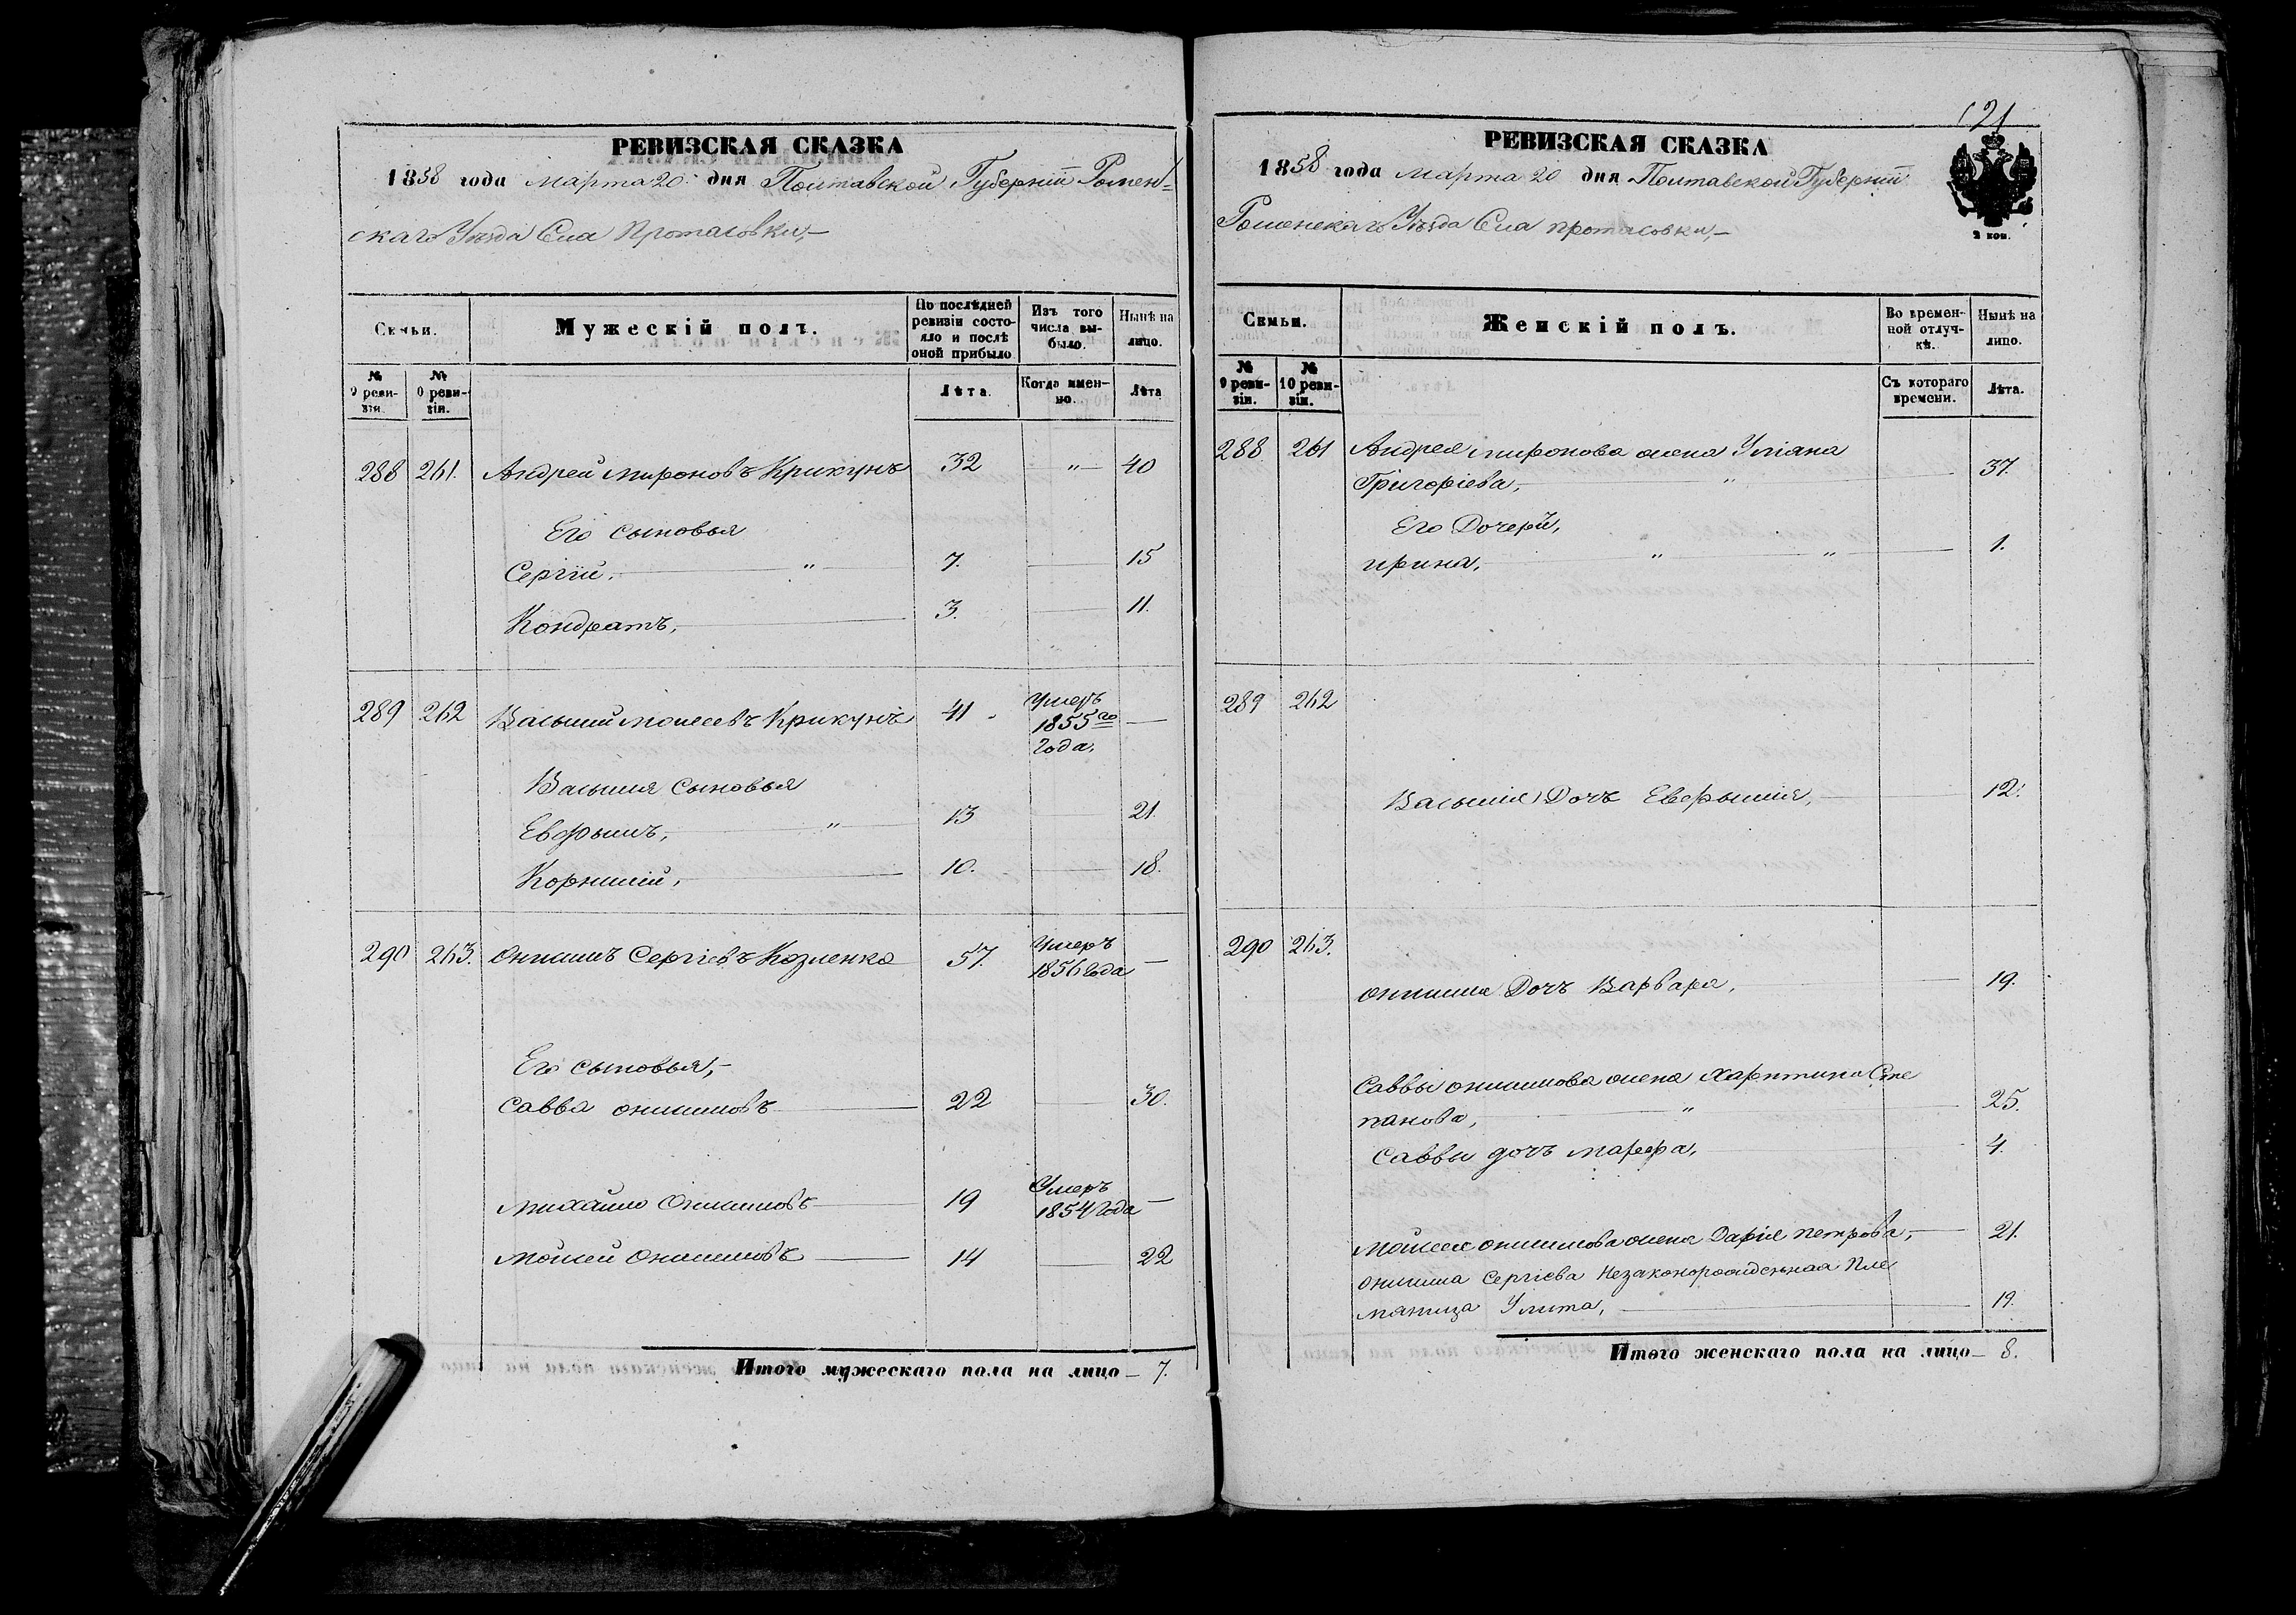 РЕВИЗСКАЯ СКАЗКА
1858 года Марта 20. дня Полтавской Губерніи Ромен-
скаго Уѣзда Села Протасовки,
Семьи. Мужескій полъ. По послѣдней ревизіи состояло и послѣ оной прибыло Изъ того числа выбыло. Нынѣ на лицо.
№ 9 ревизіи. № 0 ревизіи. Лѣта. Когда именно. Лѣта
288 261. Андрей мироновъ Крикунъ 32 „ 40
Его сыновья
Сергій, „ 7. 15
Кондратъ, 3. 11.
289 262 Василий моисеевъ Крикунъ 41 Умеръ
1855го
Года,
Василия сыновья
Евфимъ, „ 13 21.
Корнилій, 10. 18.
290 263. Онисимъ Сергіевъ Козленко 57. Умеръ
1856 Года
Его сыновья,
Савва онисимовъ 22 30.
Михайло Онисимовъ 19 Умеръ
1854 Года
Мойсей Онисимовъ 14 22
Итого мужескаго пола на лицо 7.
121
РЕВИЗСКАЯ СКАЗКА
1858 года Марта 20 дня Полтавской Губерніи
Роменскаго Уѣзда Села протасовки,
2 коп.
Семьи. Женскій полъ. Во временной отлучкѣ. Нынѣ на лицо.
№ 9 ревизіи. № 10 ревизіи. Съ котораго времени. Лѣта.
288 261 Андрея миронова жена Уліяна
Григоріева, „ 37.
Его Дочери,
ирина, „ „ 1.
289 262
Василія Дочь Евфимия, 12.
290 263.
онисима Дочь Варвара, 19.
Саввы онисимова жена Харитина Сте
панова, „ 25.
Саввы дочь марфа, 4.
Мойсея онисимова жена Дарія петрова, 21.
онисима Сергіева Незаконорожденная Пле
мяница Улита, 19.
Итого женскаго пола на лицо 8.